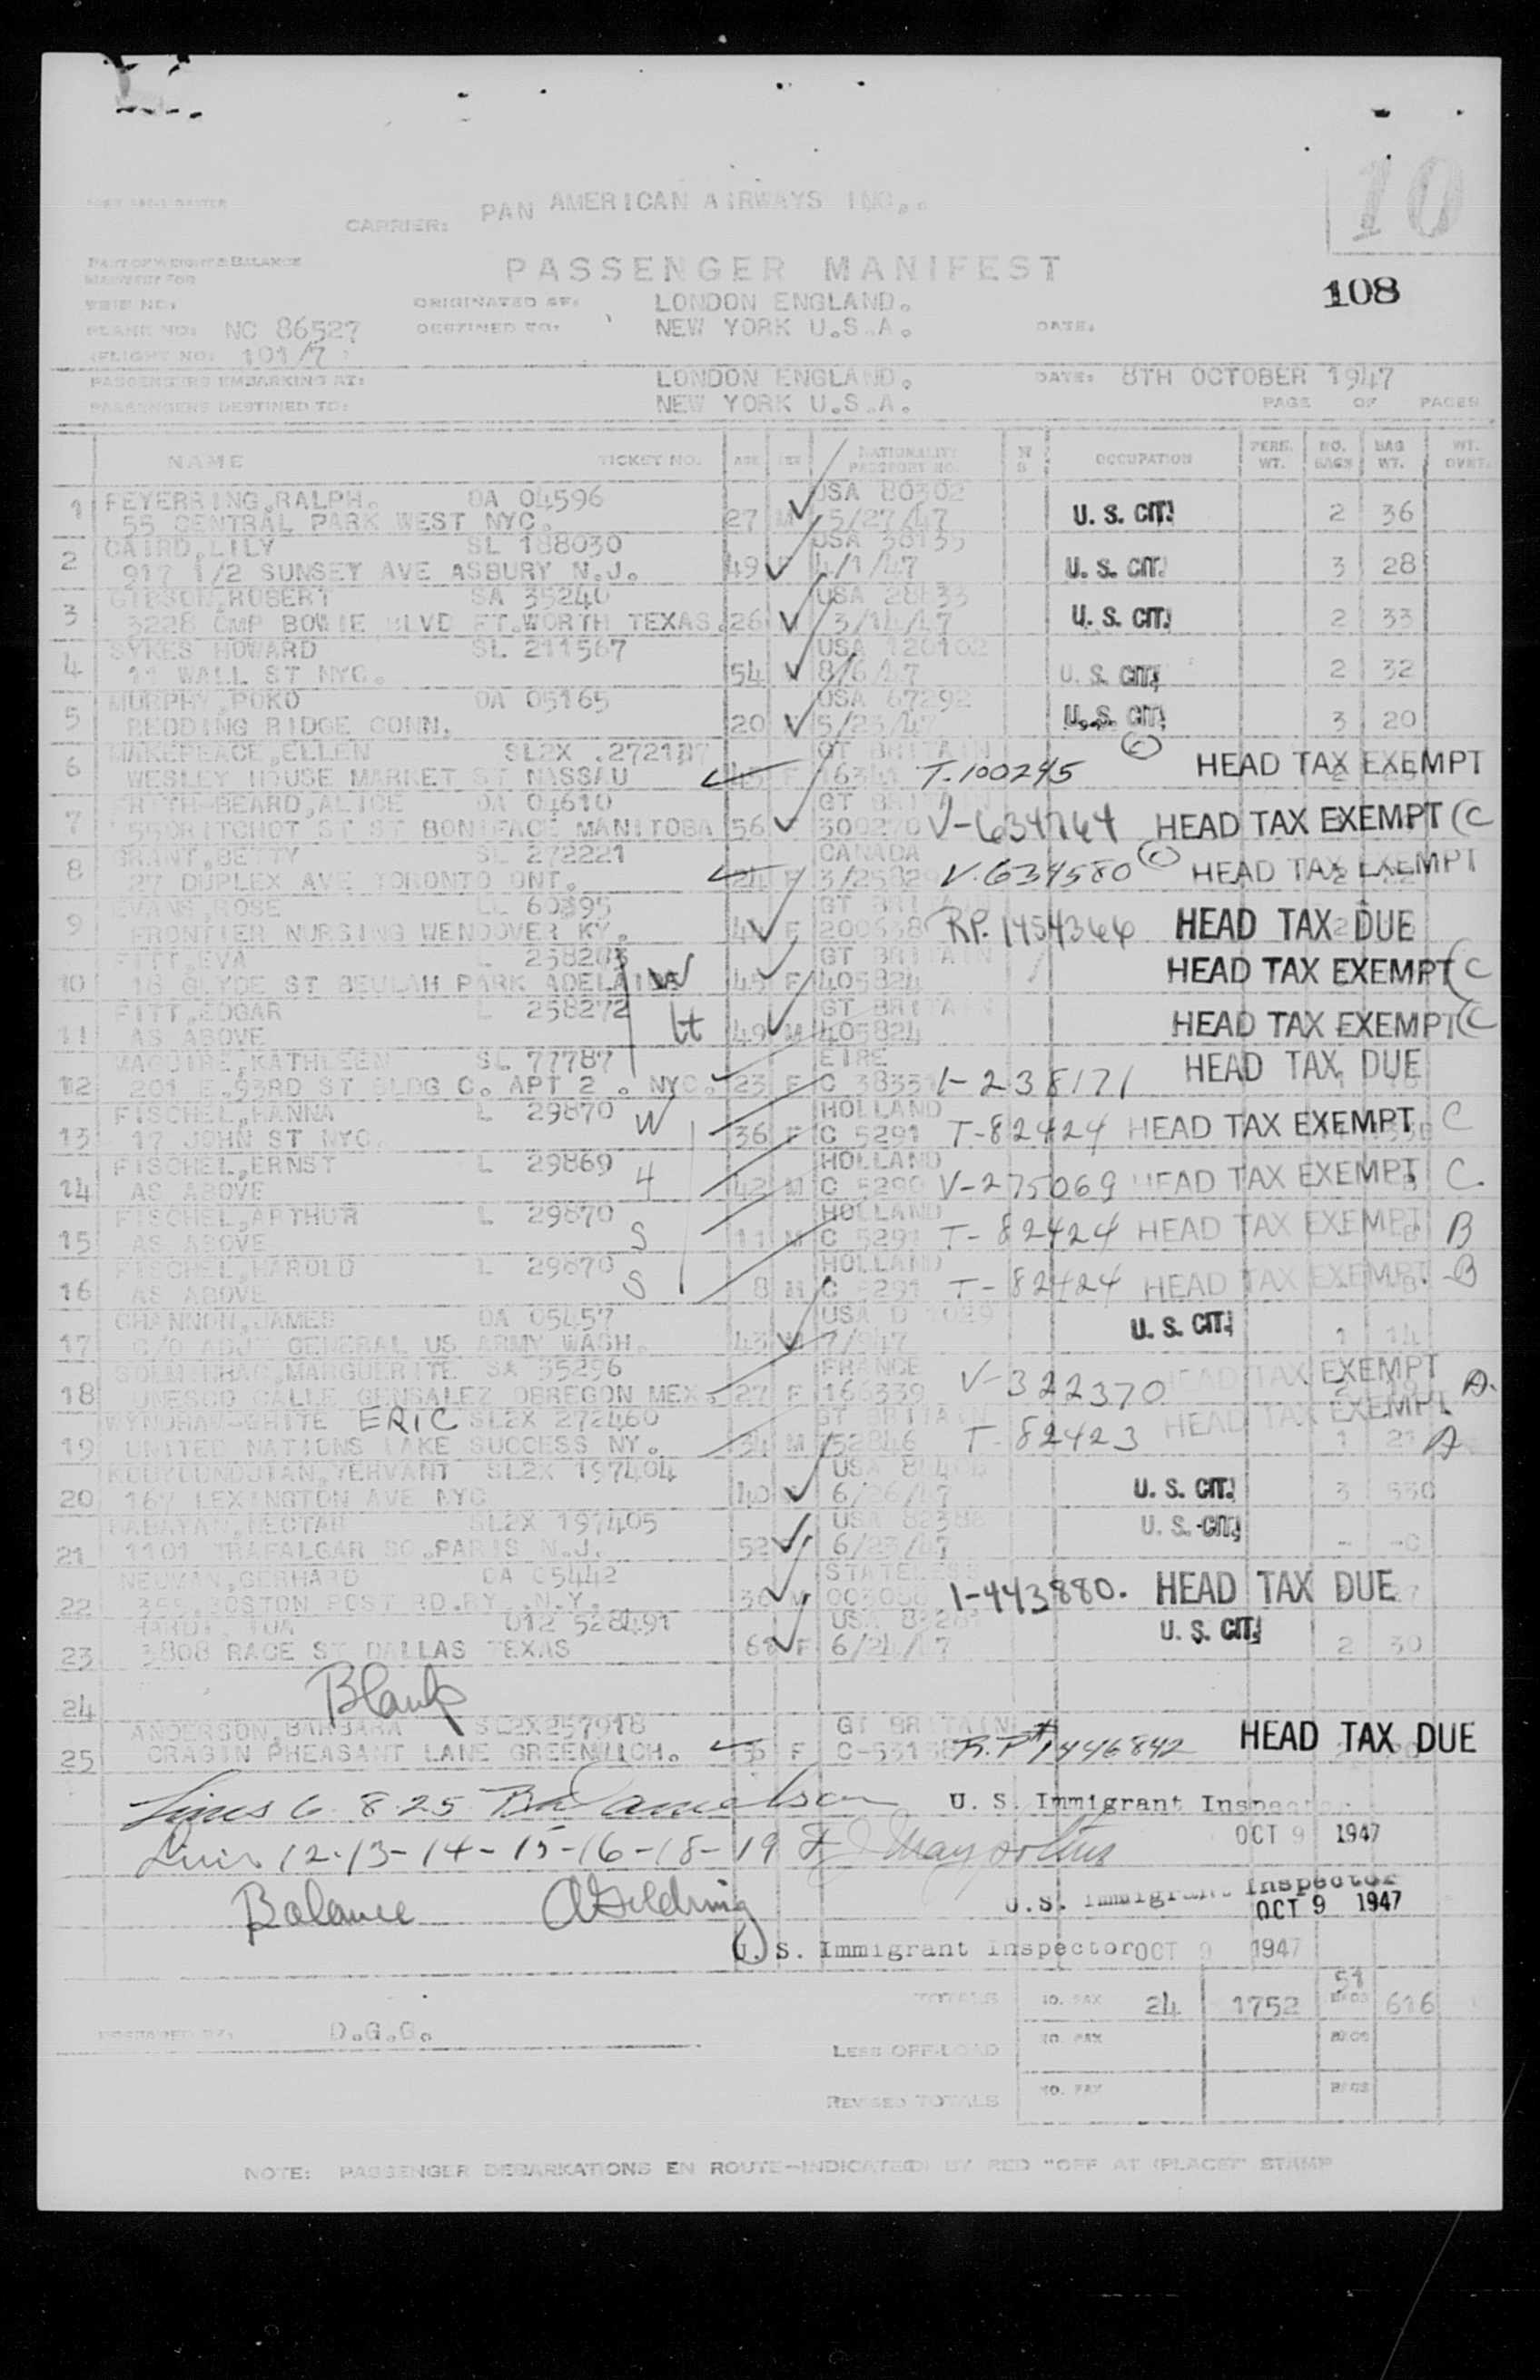 10
CARRIER: PAN AMERICAN AIRWAYS INC.
PART OF WEIGHT & BALANCE
MANIFEST FOR
PASSENGER MANIFEST
108
TRIP NO:
ORIGINATED AT: LONDON ENGLAND.
PLANE NO: NC 86527
DESTINED TO: NEW YORK U.S.A.
DATE:
FLIGHT NO: 101/7
PASSENGERS EMBARKING AT: LONDON ENGLAND.
DATE: 8TH OCTOBER 1947
PASSENGERS DESTINED TO: NEW YORK U.S.A.
PAGE OF PAGES
NAME TICKET NO. AGE SEX NATIONALITY PASSPORT NO. OCCUPATION PERS. WT. NO. BAGS BAG WT. WT. OVRT.
FEYERRING,RALPH. OA 04596 USA 80302
1 55 CENTRAL PARK WEST NYC. 27 M 5/27/47 U. S. CIT. 2 36
CAIRD,LILY SL 188030 USA
2 917 1/2 SUNSEY AVE ASBURY N.J. 49 4/1/47 U. S. CIT. 3 28
GIBSON,ROBERT SA 35240 USA
3 3228 CMP BOWIE BLVD FT.WORTH TEXAS. 26 3/14/47 U. S. CIT. 2 33
SYKES HOWARD SL 211567 USA 126102
4 11 WALL ST NYC. 54 8/6/47 U. S. CIT. 2 32
MURPHY,POKO OA 05165 USA 67292
5 REDDING RIDGE CONN. 20 5/23/47 U. S. CIT. 3 20
MAKEPEACE,ELLEN SL2X .272187 GT BRITAIN
6 WESLEY HOUSE MARKET ST NASSAU F T.100245 HEAD TAX EXEMPT
FRITH-BEARD,ALICE OA 04610 GT BRITAIN
7 ST BONIFACE MANITOBA 56 V-634764 HEAD TAX EXEMPT (C
GRANT,BETTY SL 272221 CANADA
8 27 DUPLEX AVE TORONTO ONT. 24 F 3/25829 V.634580 (C) HEAD TAX EXEMPT
EVANS,ROSE 60395 GT BRITAIN
9 FRONTIER NURSING WENDOVER KY. F RP. 1454366 HEAD TAX DUE
FITT,EVA L 258203 GT BRITAIN
10 16 GLYDE ST BEULAH PARK ADELAIDE W 45 F 405824 HEAD TAX EXEMPT (C
FITT,EDGAR L 258272 GT BRITAIN
11 AS ABOVE H 49 M 405824 HEAD TAX EXEMPT (C
MAGUIRE,KATHLEEN SL 77787 EIRE
12 201 E.93RD ST BLDG C. APT 2 . NYC. 23 F C 3833 1-238171 HEAD TAX DUE
FISCHEL,HANNA L 29870 W HOLLAND
13 17 JOHN ST NYC. 36 F C 5291 T-82424 HEAD TAX EXEMPT C
FISCHEL,ERNST L 29869 HOLLAND
14 AS ABOVE H 42 M C 5290 V-275069 HEAD TAX EXEMPT C.
FISCHEL,ARTHUR L 29870 HOLLAND
15 AS ABOVE S 11 M C 5291 T-82424 HEAD TAX EXEMPT B
FISCHEL,HAROLD L 29870 HOLLAND
16 AS ABOVE S 8 M C 5291 T-82424 HEAD TAX EXEMPT. B
CHANNON,JAMES OA 05457 USA
17 C/O ADJ GENERAL US ARMY WASH. 43 M U. S. CIT. 1 14
MARGUERITE SA 35296 FRANCE
18 UNESCO CALLE GENSALEZ OBREGON MEX. 27 F 166339 V-322370 HEAD TAX EXEMPT A.
WYNDHAM-WHITE ERIC SL2X 272460 GT BRITAIN
19 UNITED NATIONS LAKE SUCCESS NY. 34 M 52846 T-82423 HEAD TAX EXEMPT 1 21 A
KOUYOUNDJIAN,YERVANT SL2X 197404 USA
20 167 LEXINGTON AVE NYC 40 6/26/47 U. S. CIT. 3
BABAYAN,NECTAR SL2X 197405 USA 82388
21 1101 TRAFALGAR SQ.PARIS N.J. 52 6/23/47 U. S. CIT.
NEUMAN,GERHARD OA 05442 STATELESS
22 BOSTON POST RD.RY .N.Y. 30 M 1-443880. HEAD TAX DUE
HARDY, 012 528491 USA
23 3808 RACE ST DALLAS TEXAS 68 F U. S. CIT. 2 30
24 Blank
ANDERSON,BARBARA SL2X257918 GT BRITAIN
25 CRAGIN PHEASANT LANE GREENWICH. F R.P. #1446842 HEAD TAX DUE
Lines 6 8-25 U. S. Immigrant Inspector
Lines 12-13-14-15-16-18-19 OCT 9 1947
Balance U.S. Immigrant Inspector
OCT 9 1947
U. S. Immigrant Inspector OCT 9 1947
TOTALS NO. PAX 24 1752 51 BAGS 616
PREPARED BY: D.G.G.
LESS OFF-LOAD NO. PAX BAGS
REVISED TOTALS NO. PAX BAGS
NOTE: PASSENGER DEBARKATIONS EN ROUTE-INDICATED BY RED "OFF AT (PLACE)" STAMP